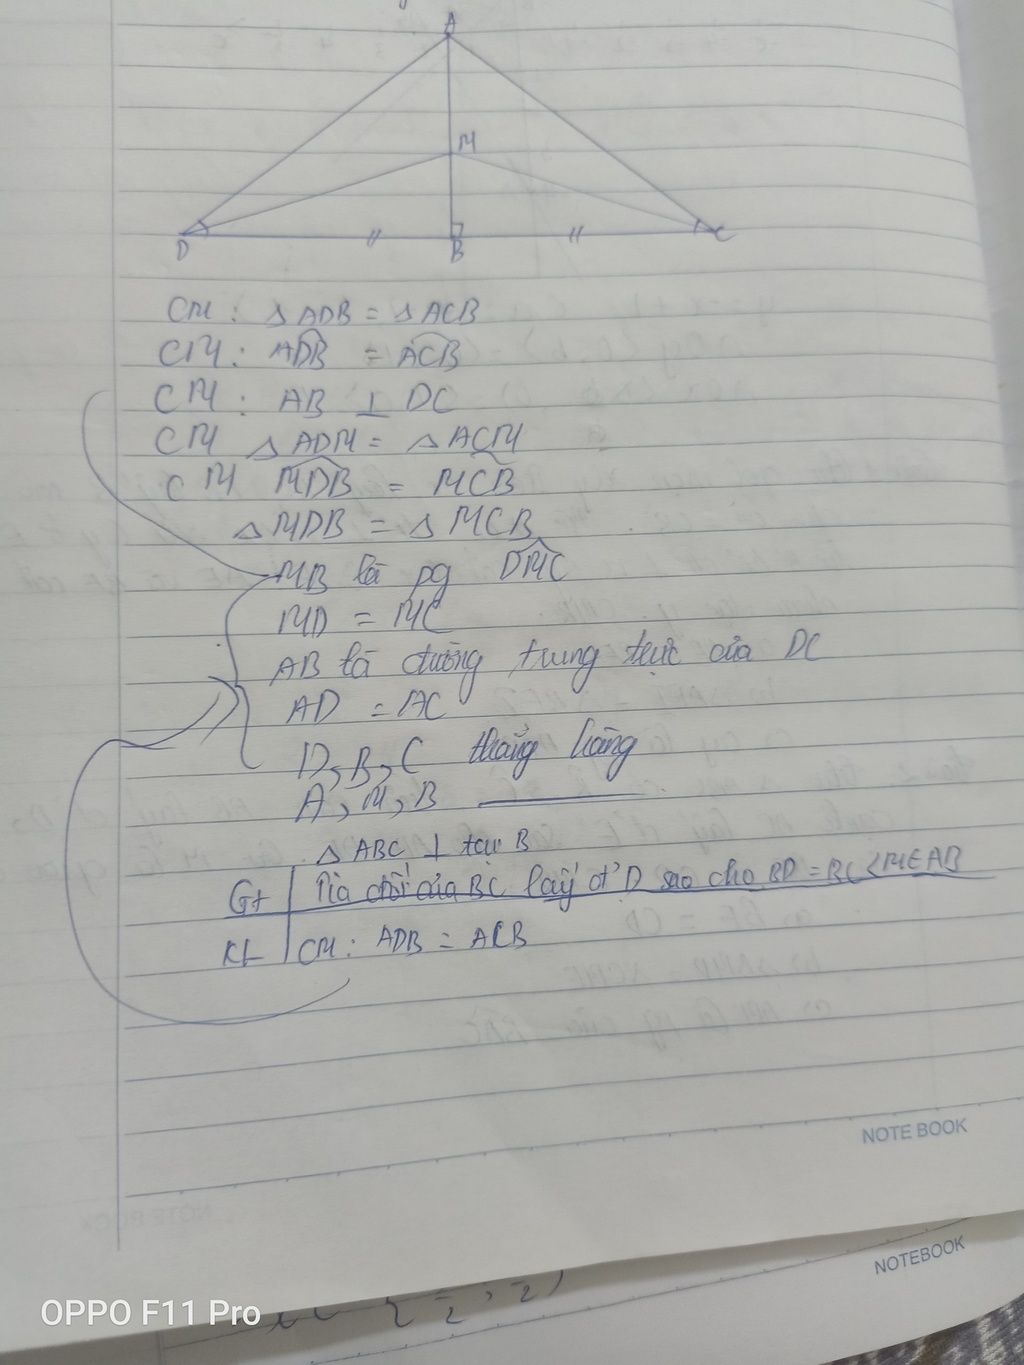 A
M
D
B
C
CM : △ ADB = △ ACB
CM : ADB = ACB
CM : AB ⊥ DC
CM △ ADM = △ ACM
CM MDB = MCB
△ MDB = △ MCB
MB là pg DMC
MD = MC
AB là đường trung trực của DC
AD = AC
D, B, C thẳng hàng
A, M, B ———
△ ABC ⊥ tại B
Gt Tia đối của BC lấy đ' D sao cho BD = BC M ∈ AB
KL CM : ADB = ACB
NOTE BOOK
NOTEBOOK
OPPO F11 Pro